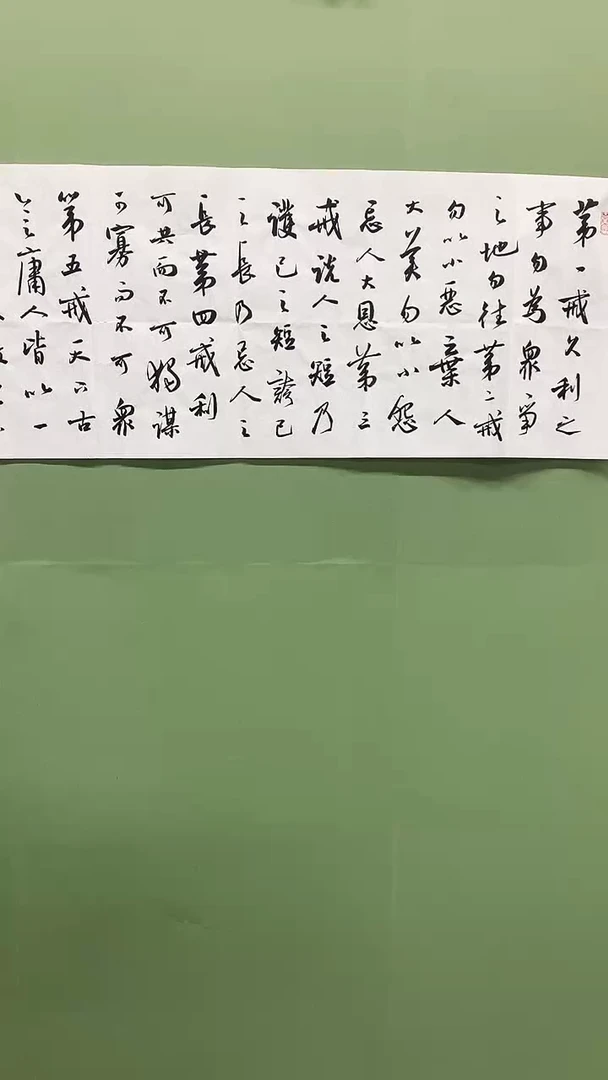 第一戒久利之
事勿為衆爭
之地勿往第二戒
勿以小惡棄人
大美勿以小怨
忘人大恩第三
戒說人之短乃
護己之短誇己
之長乃忌人之
長第四戒利
可共而不可獨謀
可寡而不可衆
第五戒天下古
今之庸人皆以一